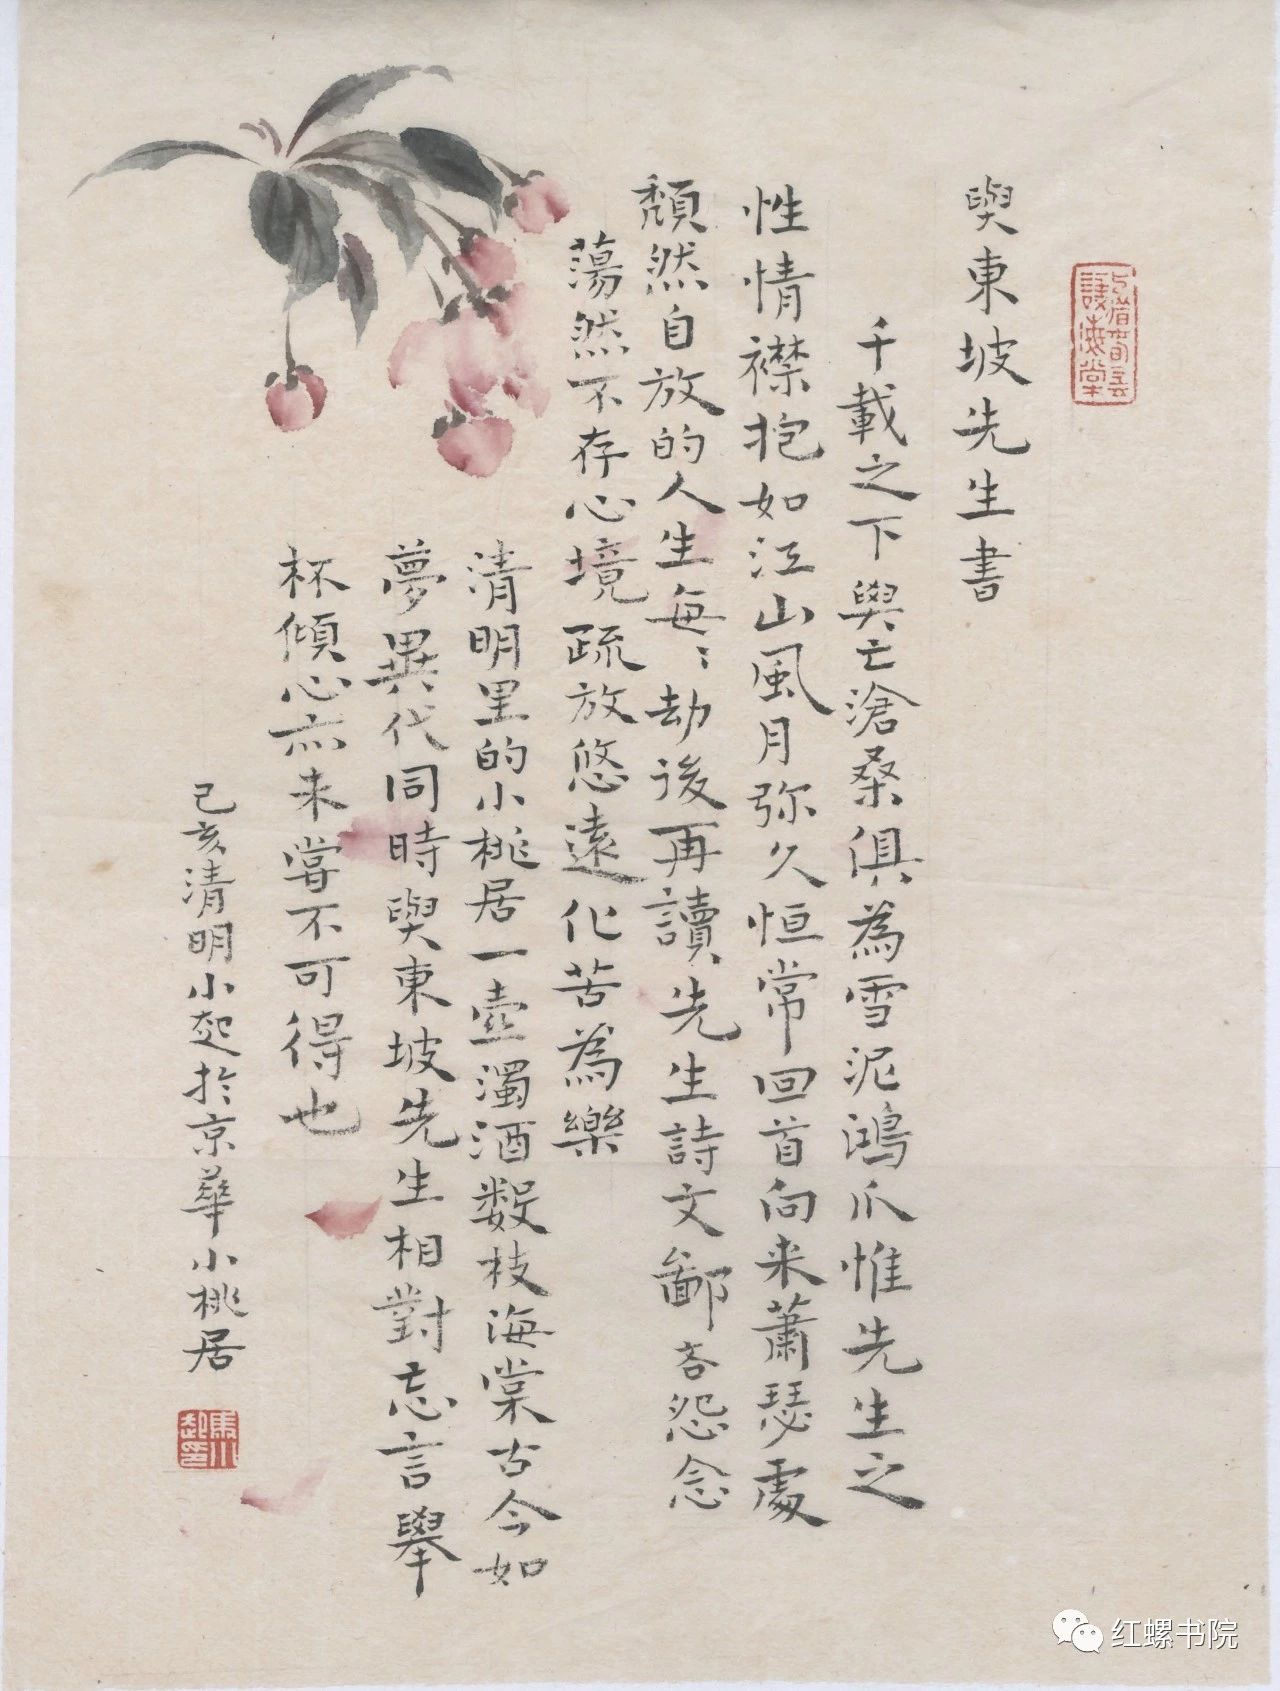 與東坡先生書
千載之下興亡滄桑俱為雪泥鴻爪惟先生之
性情襟抱如江山風月弥久恒常回首向来蕭瑟處
頹然自放的人生每〻劫後再讀先生詩文鄙吝怨念
蕩然不存心境疏放悠遠化苦為樂
清明里的小桃居一壺濁酒数枝海棠古今如
夢異代同時與東坡先生相對忘言舉
杯傾心亦未嘗不可得也
己亥清明小起於京華小桃居
红螺书院